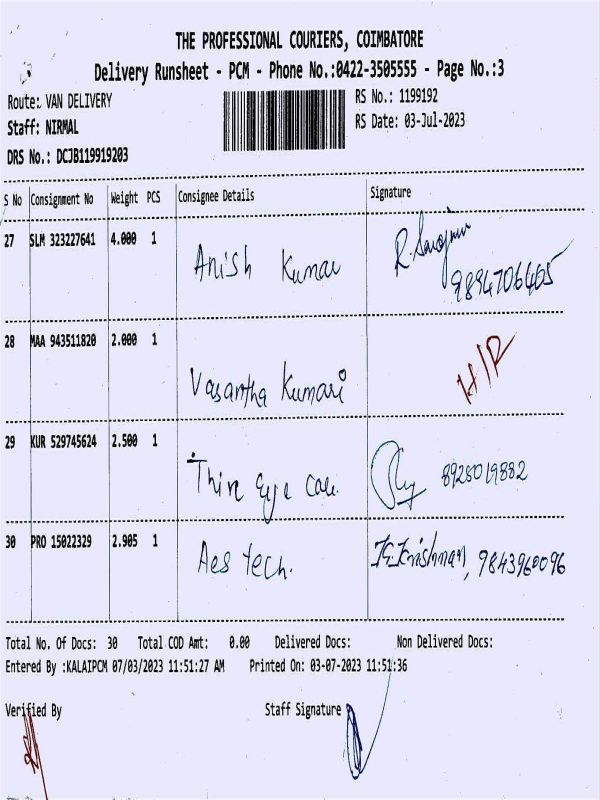 THE PROFESSIONAL COURIERS, COIMBATORE
Delivery Runsheet - PCM - Phone No.:0422-3505555 - Page No.:3
Route: VAN DELIVERY RS No.: 1199192
Staff: NIRMAL RS Date: 03-Jul-2023
DRS No.: DCJB119919203
S No Consignment No Weight PCS Consignee Details Signature
27 SLM 323227641 4.000 1 Anish Kumar 9894706405
28 MAA 943511820 2.000 1 Vasantha Kumari H/R
29 KUR 529745624 2.500 1 Eye 8925019882
30 PRO 15022329 2.905 1 Aes tech. Krishnan, 9843960096
Total No. Of Docs: 30 Total COD Amt: 0.00 Delivered Docs: Non Delivered Docs:
Entered By :KALAIPCM 07/03/2023 11:51:27 AM Printed On: 03-07-2023 11:51:36
Verified By Staff Signature